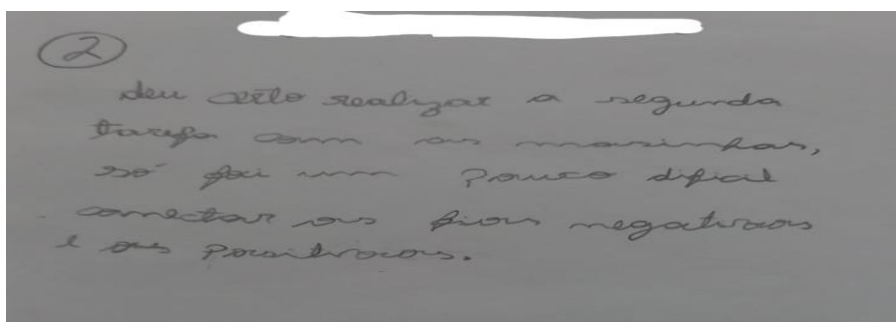 2
deu certo realizar a segunda
tarefa com as massinhas,
só foi um pouco dificil
conectar os fios negativos
e os Positivos.